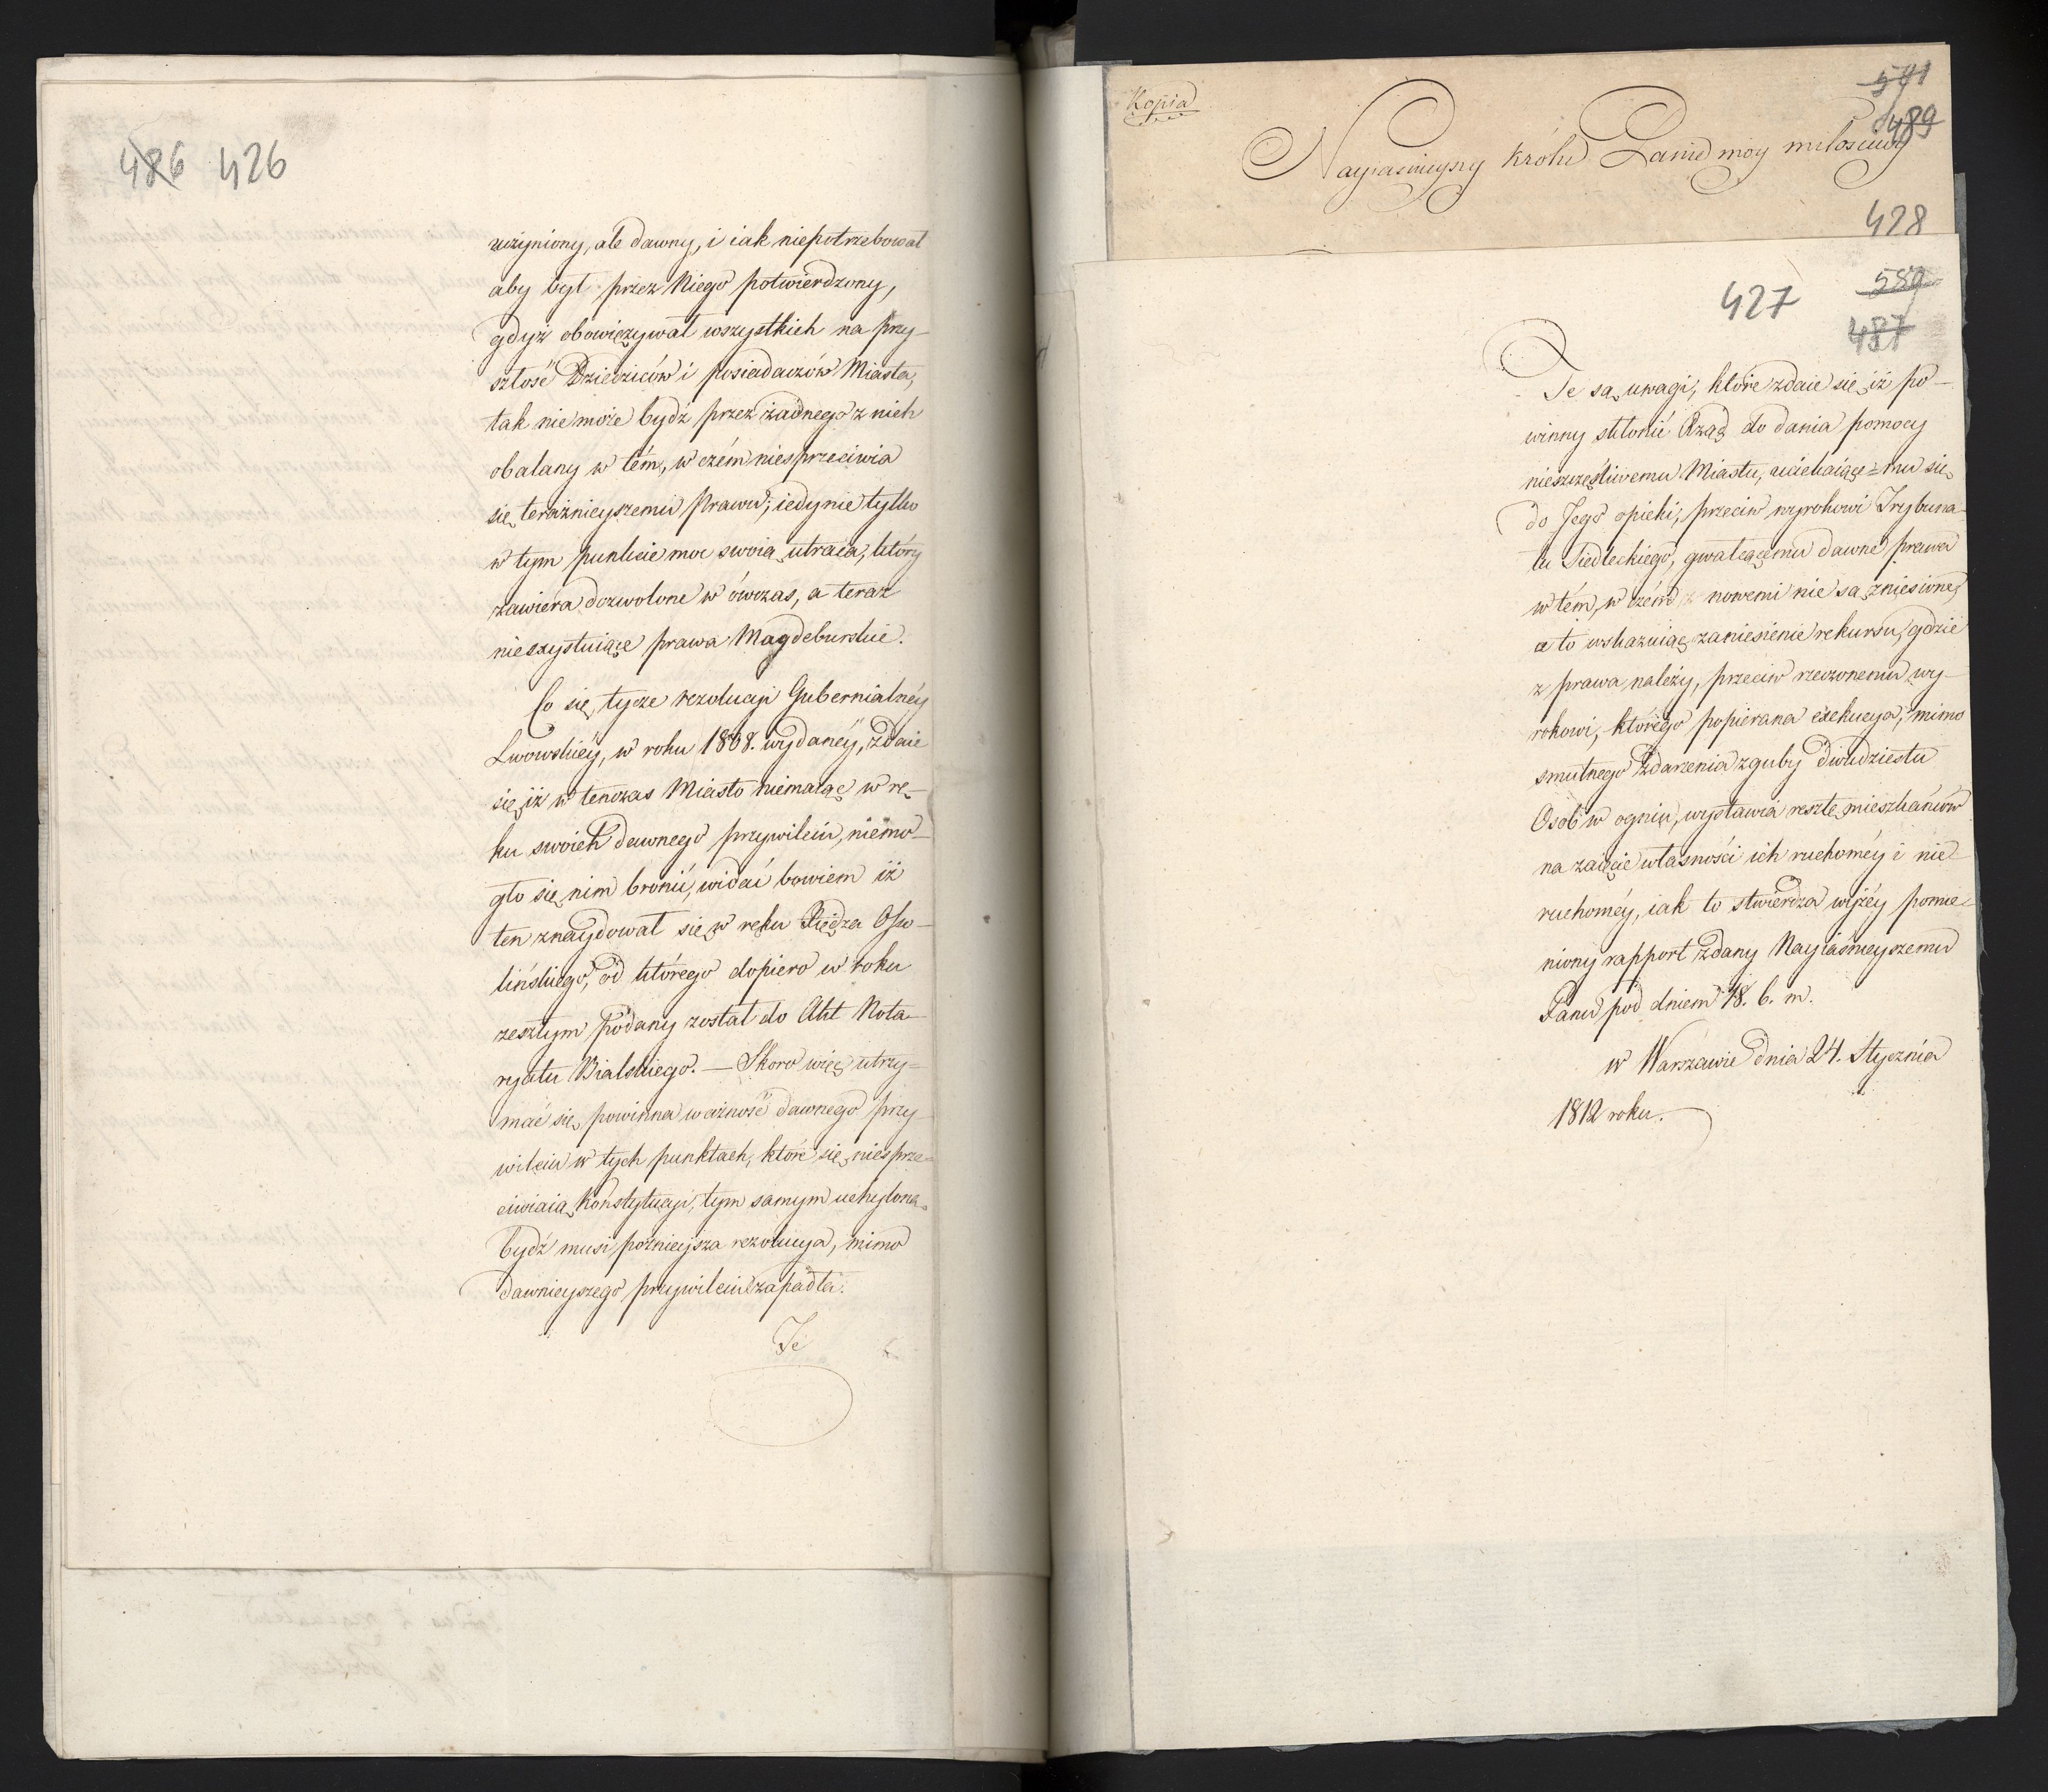 486 426
uczyniony, ale dawny, i iak niepotrzebował
aby był przez Niego potwierdzony,
gdyż obowięzywał wszystkich na przy-
szłość Dziedziców i posiadaczów Miasta,
tak nie może bydź przez żadnego z nich
obalany w tém, w czém niesprzeciwia
się teraźnieyszemu Prawu; iedynie tylko
w tym punkcie moc swoią utraca, który
zawiera dozwolone w ówczas, a teraz
nieexystuiące prawa Magdeburskie.
Co się tycze rezolucyi Gubernialnéy
Lwowskiéy, w roku 1808. wydanéy, zdaie
się, iż w tenczas Miasto niemaiąc w rę-
ku swoich dawnego przywileiu, niemo-
gło się nim bronić, widać bowiem iż
ten znaydował się w ręku Xiędza Osso-
lińskiego, od którego dopiero w roku
zeszłym podany został do Akt Nota-
ryatu Bialskiego. — Skoro więc utrzy-
mać się powinna ważność dawnego przy-
wileiu w tych punktach, które się niesprze-
ciwiaią Konstytucyi, tym samym uchylona
bydź musi poźnieysza rezolucya, mimo
dawnieyszego przywileiu zapadła.
Te
Kopia
541
489
Nayiaśnieyszy Królu Panie moy miłościwy
428
427
589
487
Te są uwagi, które zdaie się, iż po-
winny skłonić Rząd do dania pomocy
nieszczęśliwemu Miastu, uciekaiącemu się
do Jego opieki, przeciw wyrokowi Trybuna-
łu Siedleckiego, gwałcącemu dawne prawa
w tém, w czém nowemi nie są zniesione,
a to wskazuiąc zaniesienie rekursu, gdzie
z prawa należy, przeciw rzeczonemu wy-
rokowi, którego popierana exekucya, mimo
smutnego zdarzenia zguby dwudziestu
Osób w ogniu, wystawia resztę mieszkańców
na zaięcie własności ich ruchoméy i nie-
ruchoméy, iak to stwierdza wyżéy pomie-
niony rapport zdany Nayiaśnieyszemu
Panu pod dniem 18. b. m.
w Warszawie dnia 24. Stycznia
1812 roku.